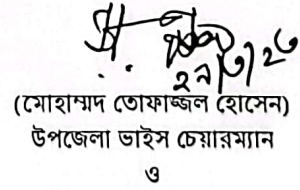 (মোহাম্মদ তোফাজ্জল হোসেন)
উপজেলা ভাইস চেয়ারম্যান
ও